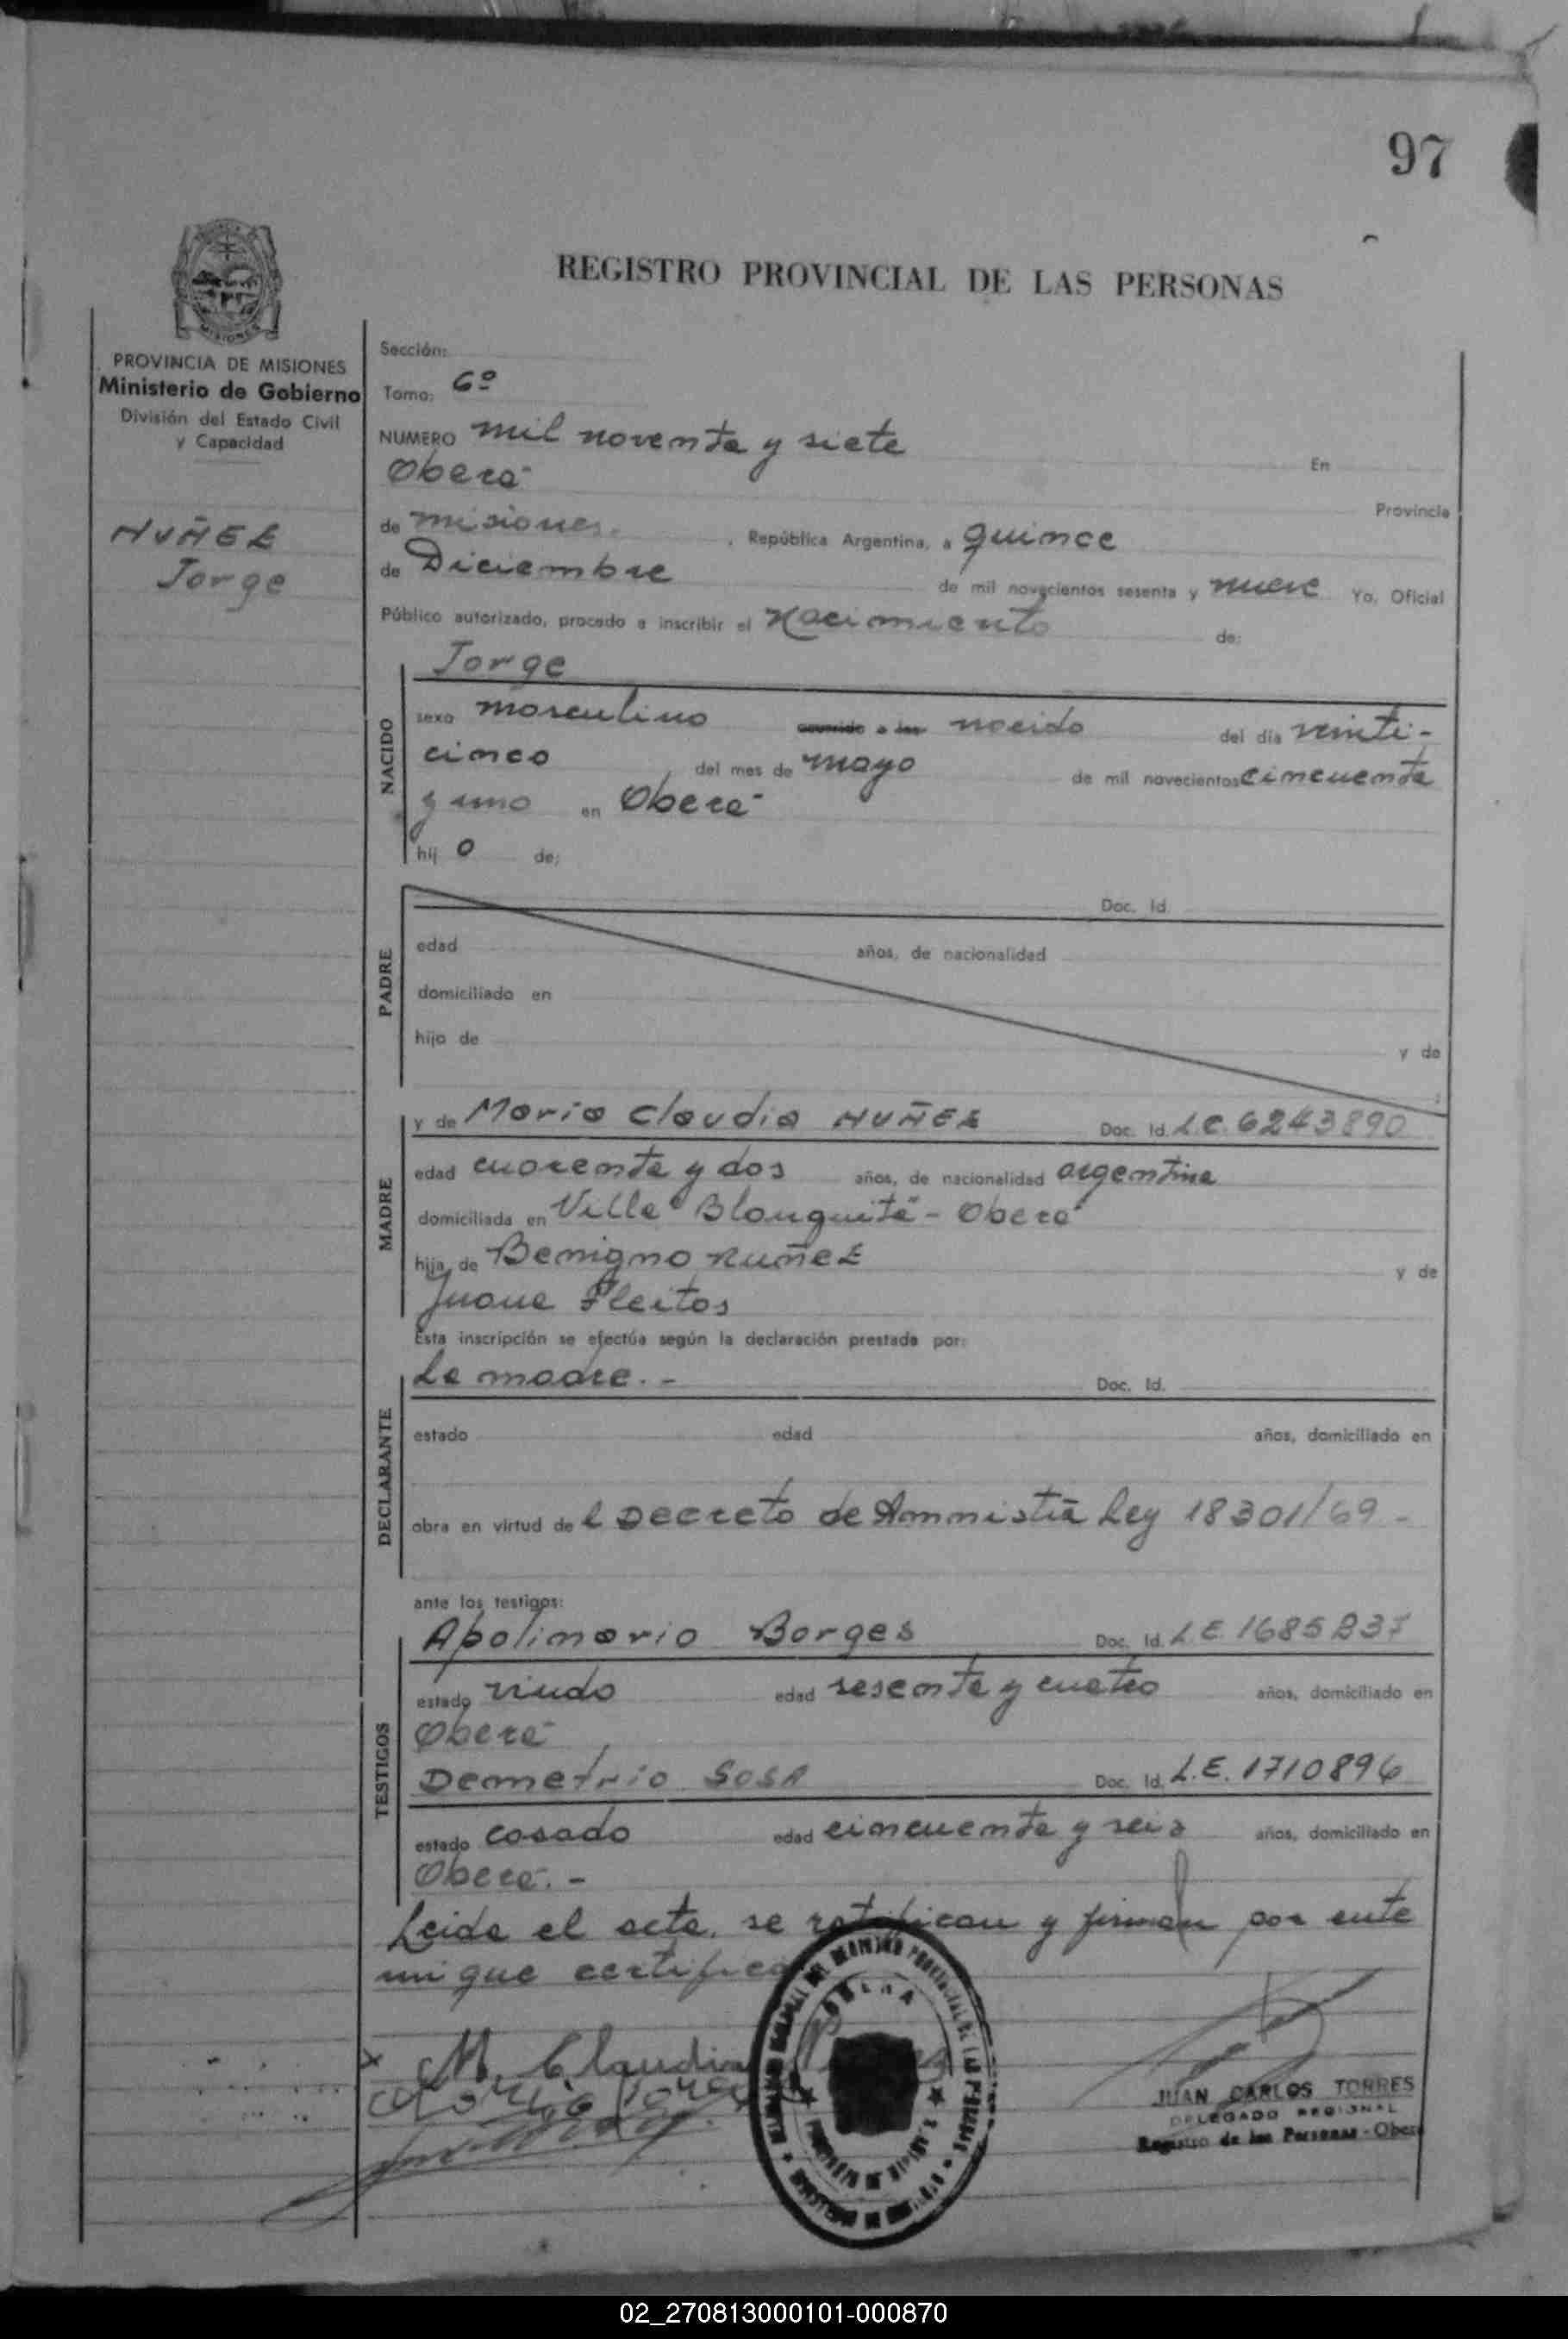 97
REGISTRO PROVINCIAL DE LAS PERSONAS
MISIONES
PROVINCIA DE MISIONES
Ministerio de Gobierno
División del Estado Civil
y Capacidad
NUÑEZ
Jorge
Sección:
Tomo: 6º
NUMERO mil noventa y siete En
Oberá Provincia
de misiones. , República Argentina, a quince
de Diciembre de mil novecientos sesenta y nueve Yo, Oficial
Público autorizado, procedo a inscribir el Nacimiento de:
NACIDO
Jorge
sexo masculino ocurrido a las nacido del día veinti-
cinco del mes de mayo de mil novecientos cincuenta
y uno en Oberá
hij o de:
PADRE
Doc. Id.
edad años, de nacionalidad
domiciliado en
hijo de y de
MADRE
y de Maria Claudia NUÑEZ Doc. Id. L.C. 6243890
edad cuarenta y dos años, de nacionalidad argentina
domiciliada en Villa "Blanquita" - Oberá
hija de Benigno Nuñez y de
Juana Fleitas
Esta inscripción se efectúa según la declaración prestada por:
DECLARANTE
La madre. - Doc. Id.
estado edad años, domiciliado en
obra en virtud de l Decreto de Amnistia Ley 18301/69 -
ante los testigos:
TESTIGOS
Apolinario Borges Doc. Id. L.E. 1685237
estado viudo edad sesenta y cuatro años, domiciliado en
Oberá
Demetrio SOSA Doc. Id. L.E. 1710896
estado casado edad cincuenta y seis años, domiciliado en
Oberá. -
Leida el acta, se ratifican y firman por ante
mi que certifico
x M. Claudia
OBERA
JUAN CARLOS TORRES
DELEGADO REGIONAL
Registro de las Personas - Oberá
02_270813000101-000870